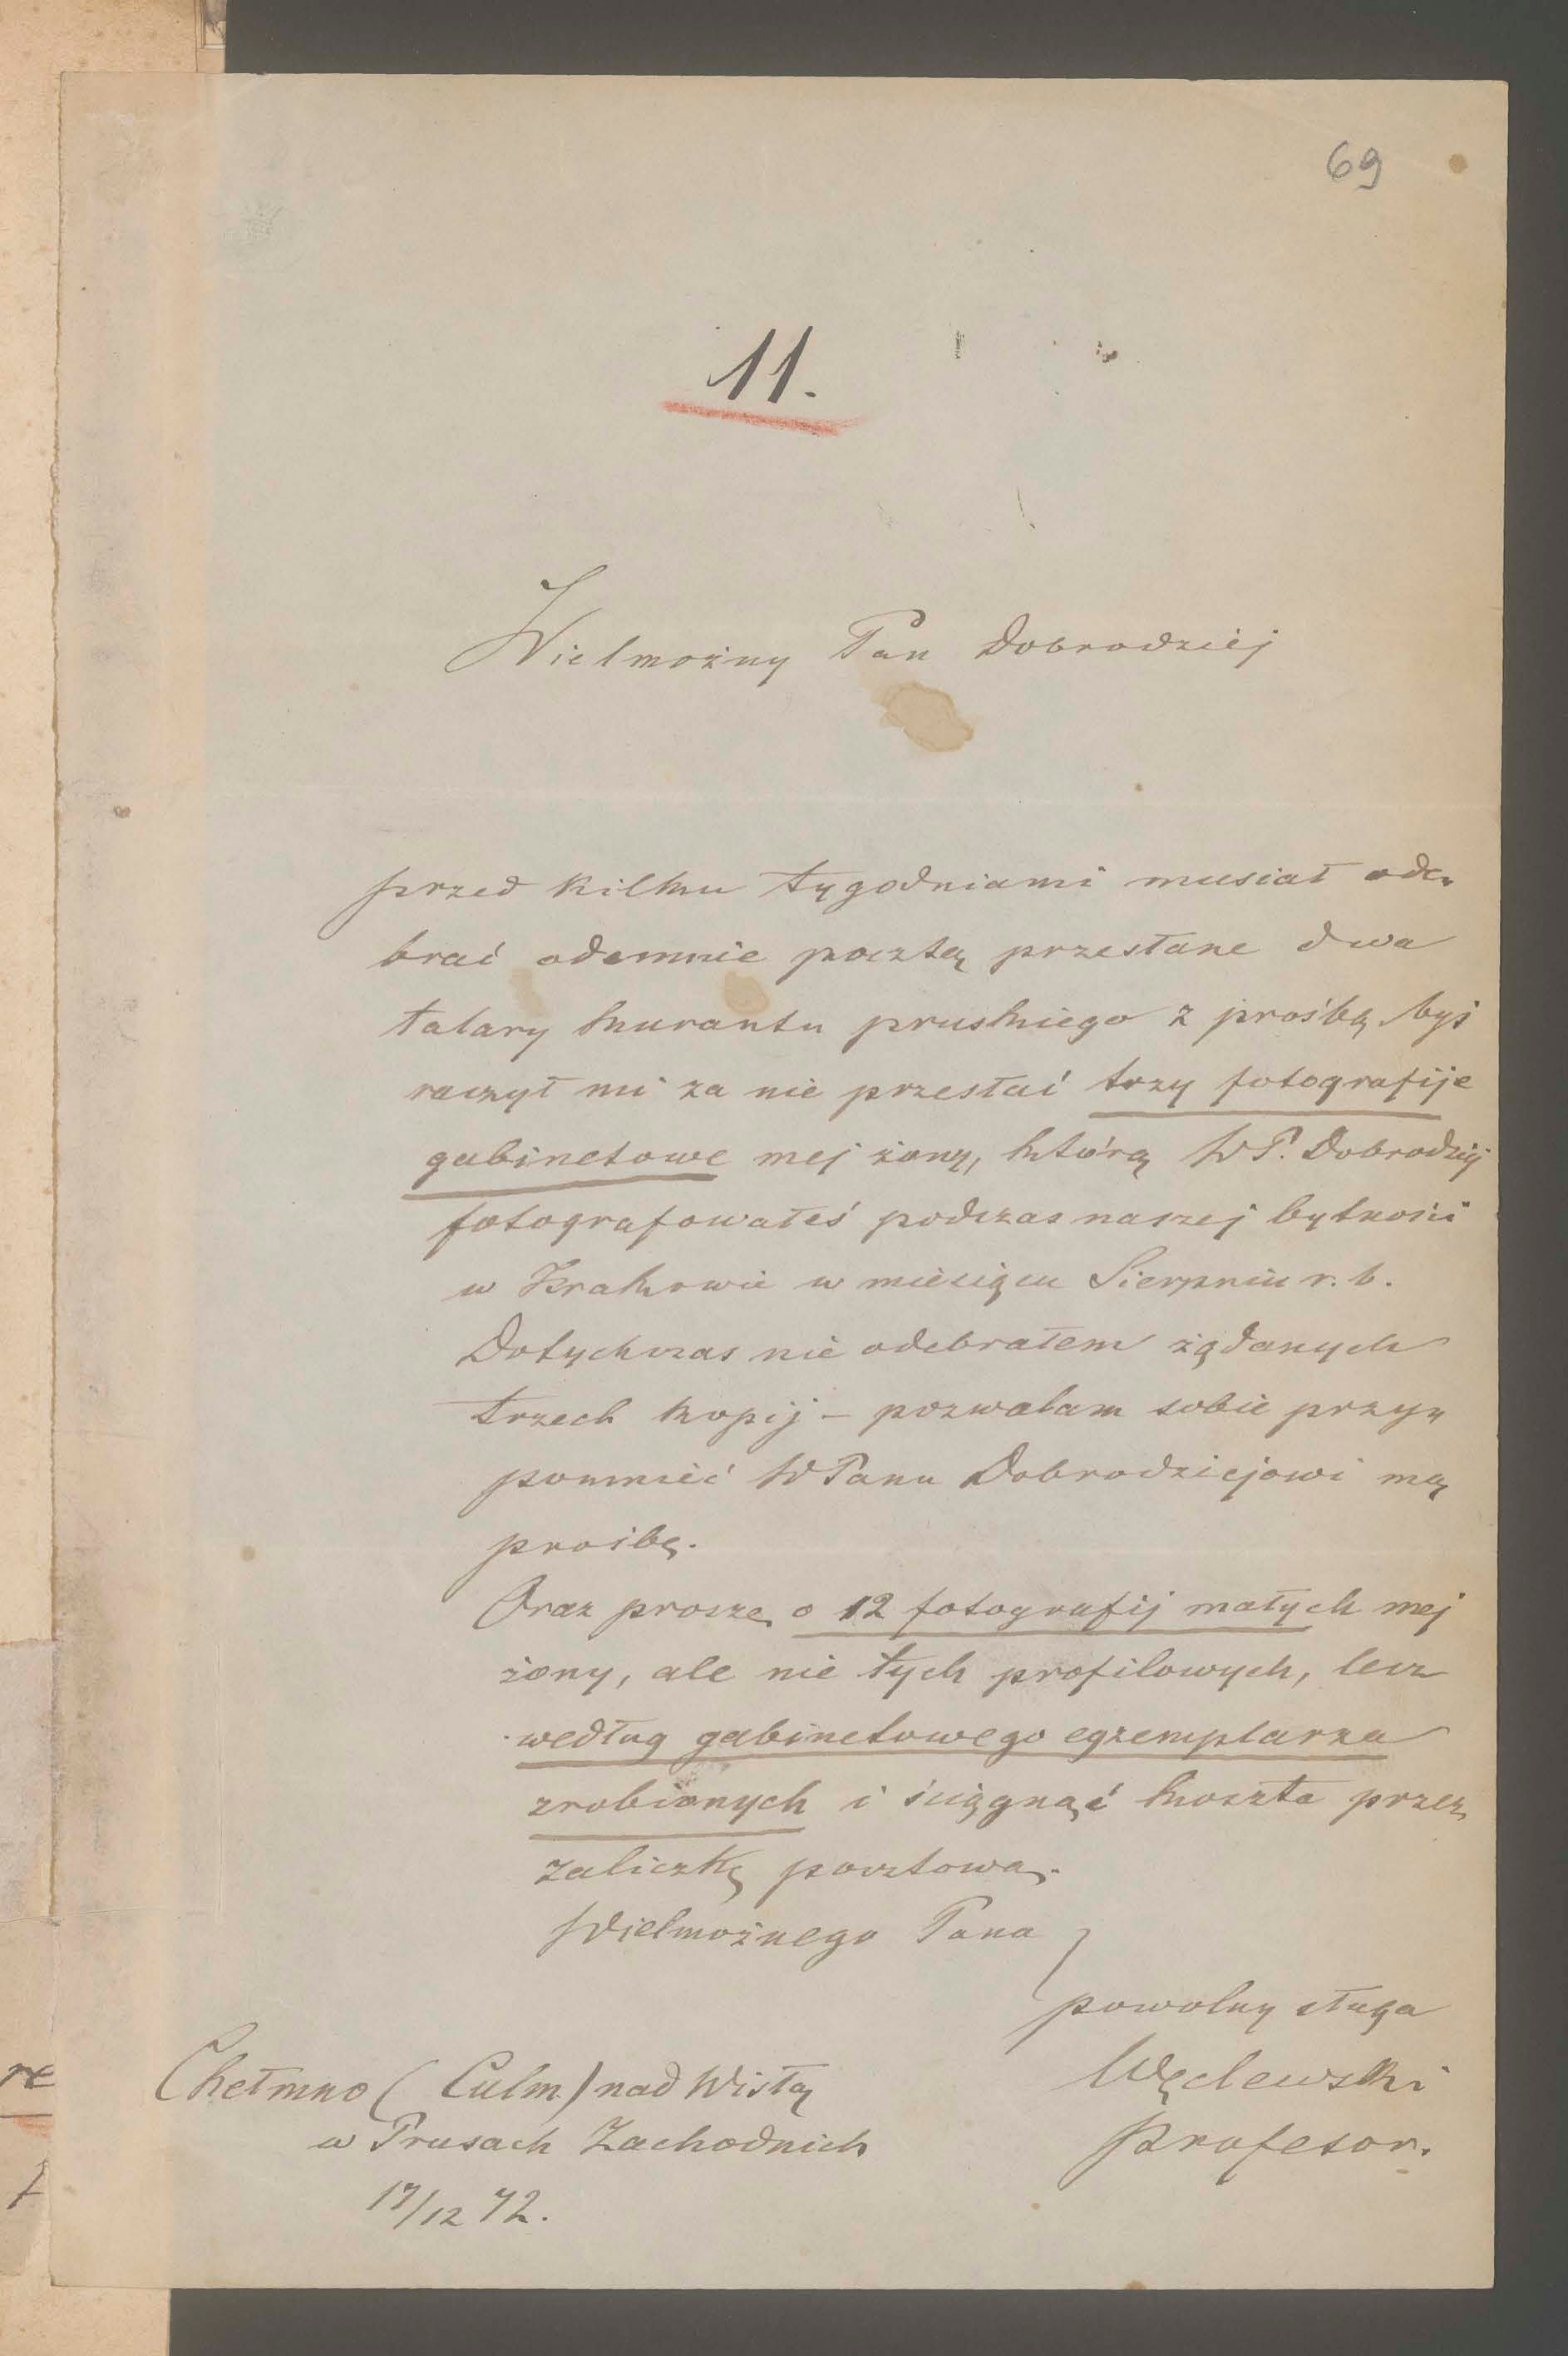 69
11.
Wielmożny Pan Dobrodziej
przed kilku tygodniami musiał ode-
brać odemnie pocztą przesłane dwa
talary kurantu pruskiego z prośbą, byś
raczył mi za nie przesłać trzy fotografije
gabinetowe mej żony, którą WP. Dobrodziej
fotografowałeś podczas naszej bytności
w Krakowie w miesiącu Sierpniu r. b.
Dotychczas nie odebrałem żądanych
trzech kopij – pozwalam sobie przy-
pomnieć WPanu Dobrodziejowi mą
prośbę.
Oraz proszę o 12 fotografij małych mej
żony, ale nie tych profilowych, lecz
według gabinetowego egzemplarza
zrobionych i ściągnąć koszta przez
zaliczkę pocztową.
Wielmożnego Pana
powolny sługa
Węclewski
Profesor.
Chełmno (Culm) nad Wisłą
w Prusach Zachodnich
17/12 72.
re